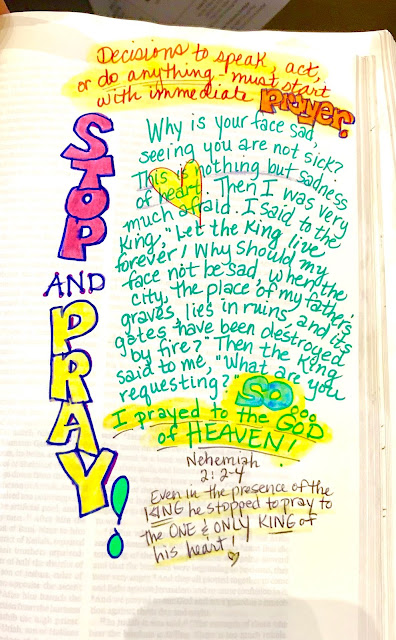 Decisions to speak, act,
or do anything must start
with immediate Prayer.
STOP
AND
PRAY!
Why is your face sad,
seeing you are not sick?
This is nothing but sadness
of heart. Then I was very
much afraid. I said to the
King, "Let the King live
forever! Why should my
face not be sad, when the
city, the place of my father's
graves, lies in ruins and its
gates have been destroyed
by fire?" Then the King
said to me, "What are you
requesting?" SO...
I prayed to the GOD
of HEAVEN!
Nehemiah
2:2-4
Even in the presence of the
KING he stopped to pray to
the ONE & ONLY KING of
his heart!